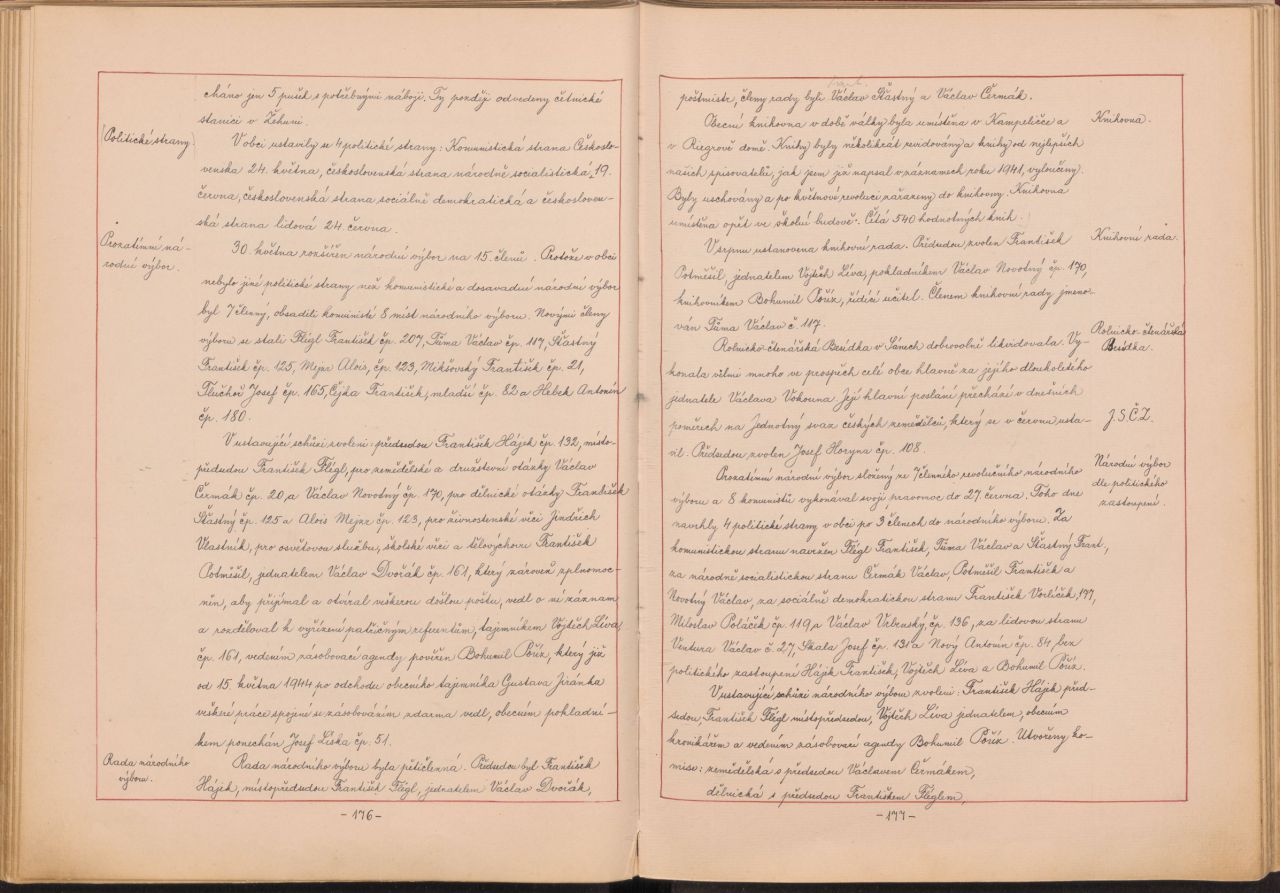 cháno jen 5 pušek s potřebnými náboji. Ty později odvedeny četnické
stanici v Žehuni.
Politické strany
V obci ustavily se 4 politické strany: Komunistická strana Českoslo-
venska 24. května, československá strana národně socialistická, 19.
června, československá strana sociálně demokratická a českosloven-
ská strana lidová 24. června.
Prozatímní ná-
rodní výbor.
30. května rozšířen národní výbor na 15. členů. Protože v obci
nebylo jiné politické strany než komunistické a dosavadní národní výbor
byl 7 členný, obsadili komunisté 8 míst národního výboru. Novými členy
výboru se stali Flégl František čp. 207, Tůma Václav čp. 117, Šťastný
František čp. 125, Mejzr Alois, čp. 123, Mikšovský František čp. 21,
Tluchoř Josef čp. 165, Čejka František, mladší čp. 82 a Hebek Antonín
čp. 180.
V ustavující schůzi zvoleni: předsedou František Hájek čp. 132, místo-
předsedou František Flégl, pro zemědělské a družstevní otázky Václav
Čermák čp. 20, a Václav Novotný čp. 170, pro dělnické otázky František
Šťastný čp. 125 a Alois Mejzr čp. 123, pro živnostenské věci Jindřich
Vlastník, pro osvětovou službu, školské věci a tělovýchovu František
Potměšil, jednatelem Václav Dvořák čp. 161, který zároveň zplnomoc-
něn, aby přijímal a otvíral veškerou došlou poštu, vedl o ní záznam
a rozděloval k vyřízení patřičným referentům, tajemníkem Vojtěch Líva,
čp. 161, vedením zásobovací agendy pověřen Bohumil Poříz, který již
od 15. května 1944 po odchodu obecního tajemníka Gustava Jiránka
veškeré práce spojené se zásobováním zdarma vedl, obecním pokladní-
kem ponechán Josef Liška čp. 51.
Rada národního
výboru.
Rada národního výboru byla pětičlenná. Předsedou byl František
Hájek, místopředsedou František Flégl, jednatelem Václav Dvořák,
- 176 -
poštmistr, členy rady byli Václav Šťastný a Václav Čermák.
Knihovna.
Obecní knihovna v době války byla umístěna v Kampeličce a
v Riegrově domě. Knihy byly několikrát revidovány a knihy od nejlepších
našich spisovatelů, jak jsem již napsal v záznamech roku 1941, vyloučeny.
Byly uschovány a po květnové revoluci zařazeny do knihovny. Knihovna
umístěna opět ve školní budově. Čítá 540 hodnotných knih.
Knihovní rada.
V srpnu ustanovena knihovní rada. Předsedou zvolen František
Potměšil, jednatelem Vojtěch Líva, pokladníkem Václav Novotný čp. 170,
knihovníkem Bohumil Poříz, řídící učitel. Členem knihovní rady jmeno-
ván Tůma Václav č. 117.
Rolnicko-čtenářská
Besídka.
Rolnicko-čtenářská Besídka v Sánech dobrovolně likvidovala. Vy-
konala velmi mnoho ve prospěch celé obce hlavně za jejího dlouholetého
jednatele Václava Vokouna. Její hlavní poslání přechází v dnešních
J.S.Č.Z.
poměrech na Jednotný svaz českých zemědělců, který se v červnu usta-
vil. Předsedou zvolen Josef Horyna čp. 108.
Národní výbor
dle politického
zastoupení.
Prozatímní národní výbor složený ze 7 členného revolučního národního
výboru a 8 komunistů vykonával svoji pravomoc do 27 června. Toho dne
navrhly 4 politické strany v obci po 3 členech do národního výboru. Za
komunistickou stranu navržen Flégl František, Tůma Václav a Šťastný Frant,
za národně socialistickou stranu Čermák Václav, Potměšil František a
Novotný Václav, za sociálně demokratickou stranu František Vorlíček, 177,
Miloslav Poláček čp. 119, a Václav Vrbenský, čp. 136, za lidovou stranu
Ventura Václav č. 27, Skala Josef čp. 131 a Nový Antonín čp. 84, bez
politického zastoupení Hájek František, Vojtěch Líva a Bohumil Poříz.
V ustavující schůzi národního výboru zvoleni: František Hájek před-
sedou, František Flégl místopředsedou, Vojtěch Líva jednatelem, obecním
kronikářem a vedením zásobovací agendy Bohumil Poříz. Utvořeny ko-
mise: zemědělská s předsedou Václavem Čermákem,
dělnická s předsedou Františkem Fléglem,
- 177 -